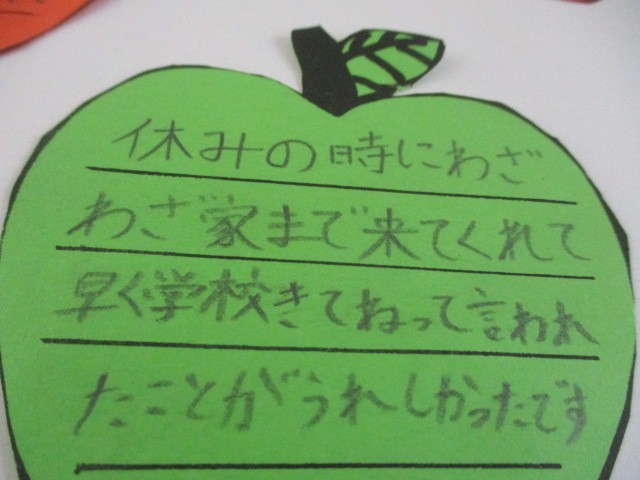 休みの時にわざ
わざ家まで来てくれて
早く学校きてねって言われ
たことがうれしかったです